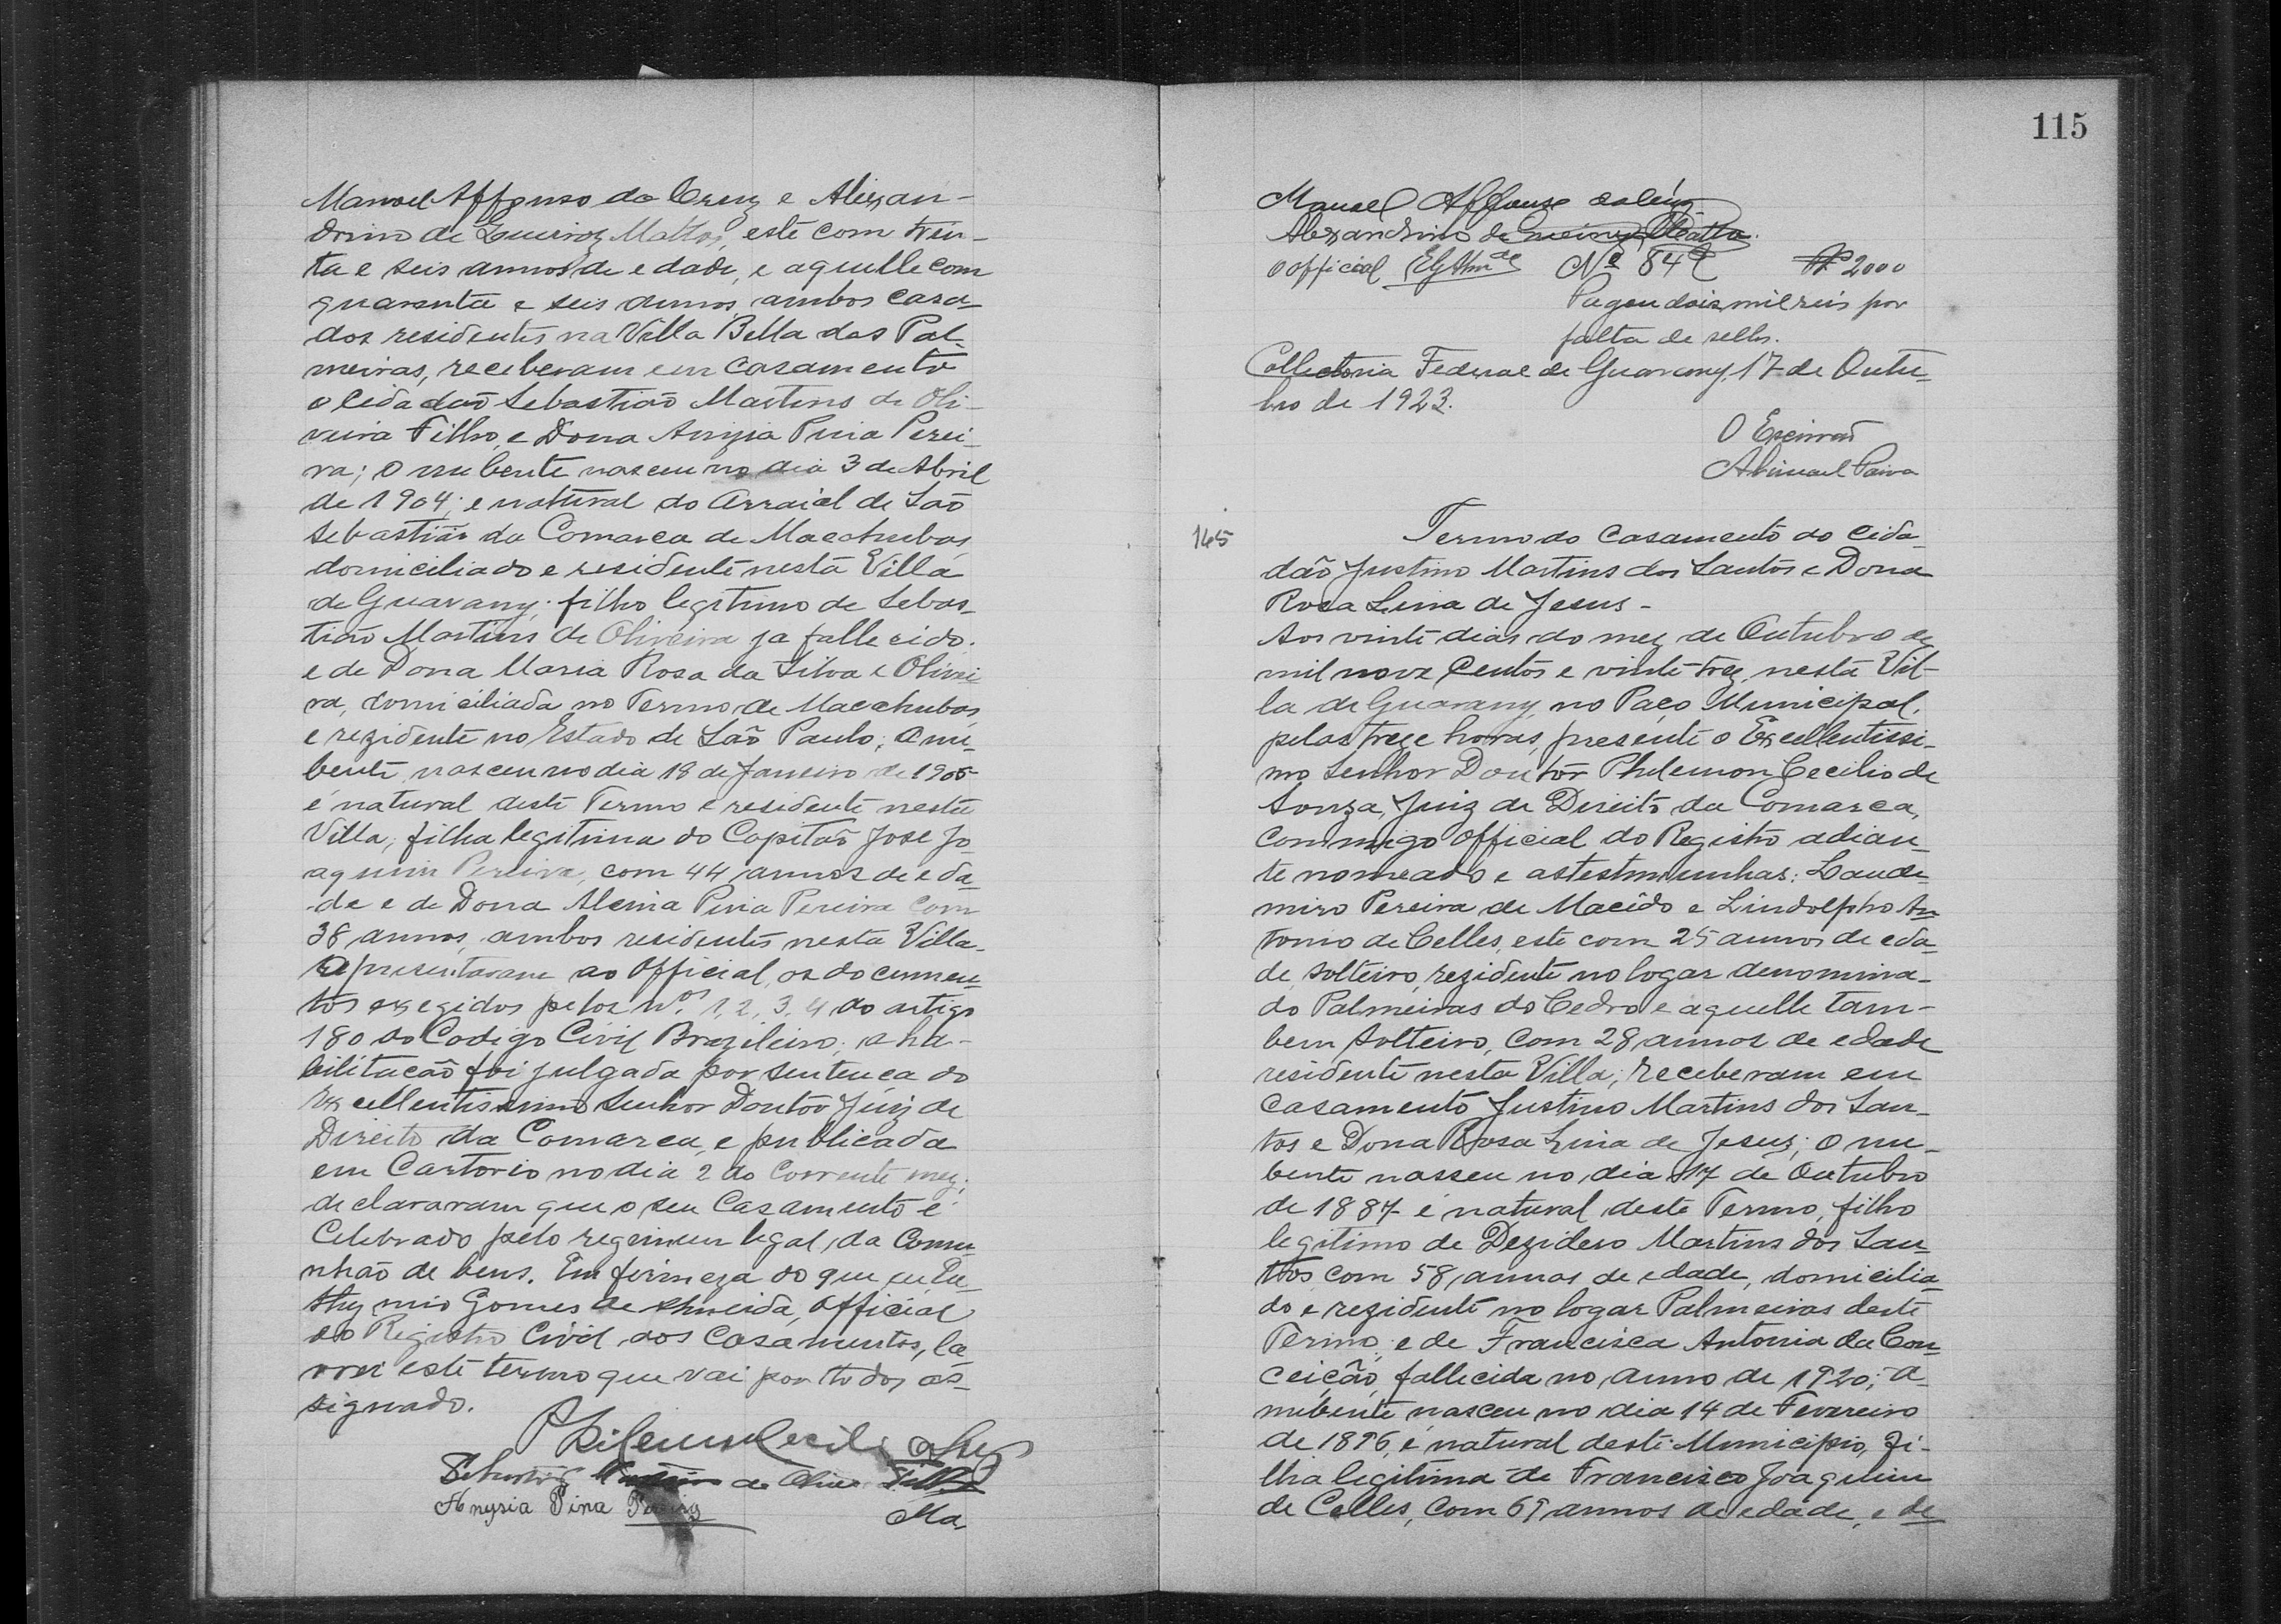 Manoel Affonso da Cruz e Alexan-
drino de Queiroz Mattos, este com trin-
ta e seis annos de edade, e aquelle com
quarenta e seis annos, ambos casa-
dos residentes na Villa Bella das Pal-
meiras, receberam em casamento
o Cidadão Sebastião Martins de Oli-
veira Filho, e Dona Anizia Pina Perei-
ra; O nubente nasceu no dia 3 de Abril
de 1904; e natural do Arraial de São
Sebastião da Comarca de Macahubas,
domiciliado e residente nesta Villa
de Guarany; filho legitimo de Sebas-
tião Martins de Oliveira ja fallecido.
e de Dona Maria Rosa da Silva e Olivei
ra, domiciliada no Termo de Macahubas,
e rezidente no Estado de São Paulo; A nu-
bente nasceu no dia 18 de Janeiro de 1905
é natural deste Termo e residente nesta
Villa; filha legitima do Capitão José Jo
aquim Pereira, com 44 annos de eda-
de e de Dona Alcina Pina Pereira com
38 annos, ambos residentes nesta Villa.
Apresentaram ao Official, os documen-
tos exegidos pelos nos. 1, 2, 3, 4 do artigo
180 do Codigo Civil Brazileiro; a ha-
bilitacão foi julgada por sentença do
Excellentissimo Senhor Doutôr Juiz de
Direito da Comarca, e publicada
em Cartorio no dia 2 do Corrente mez;
declararam que o seu Casamento é
Celebrado pelo regimem legal, da Comu-
nhão de bens. Em firmeza do que, eu Eu-
thymio Gomes de Almeida, Official
do Registro Civil dos Casamentos, la
vrei este termo que vai por todos as-
signado.
Philemon Cecilio de
Sebastião Martins de Oliveira Filho
Anysia Pina Pereira
Ma,
115
Manoel Affonso da Cruz
Alexandrino de Queiroz Mattos.
O official EGAlmde No 84 $ 2000
Pagou dois mil reis por
falta de sellos.
Collectoria Federal de Guarany, 17 de Outu-
bro de 1923.
O Escrivão
Paiva
145
Termo do Casamento do Cida-
dão Justino Martins dos Santos e Dona
Rosa Lina de Jesus -
Aos vinte dias do mez de Outubro de
mil nove Centos e vinte-trez, nesta Vil-
la de Guarany, no Paço Municipal,
pelas treze horas, presente o Excellentissi-
mo Senhor Doutôr Philemon Cecilio de
Souza, Juiz de Direito da Comarca,
Commigo Official do Registro adian-
te nomeado e as testemunhas: Laude-
miro Pereira de Macêdo e Lindolpho An-
tonio de Celles, este com 25 annos de eda-
de, solteiro, rezidente no logar denomina-
do Palmeiras do Cedro e aquelle tam-
bem solteiro, com 28 annos de edade
residente nesta Villa; receberam em
Casamento Justino Martins dos San-
tos e Dona Rosa Lina de Jesus; O nu-
bente nasseu no dia 17 de Outubro
de 1887 é natural deste Termo, filho
legitimo de Deziderio Martins dos San-
tos com 58 annos de edade, domicilia
do e rezidente no logar Palmeiras deste
Termo; e de Francisca Antonia da Con-
ceição, fallecida no anno de 1920; A
nubente nasceu no dia 14 de Fevereiro
de 1896, é natural deste Municipio, fi-
lha legitima de Francisco Joaquim
de Celles, com 69 annos de edade, e de